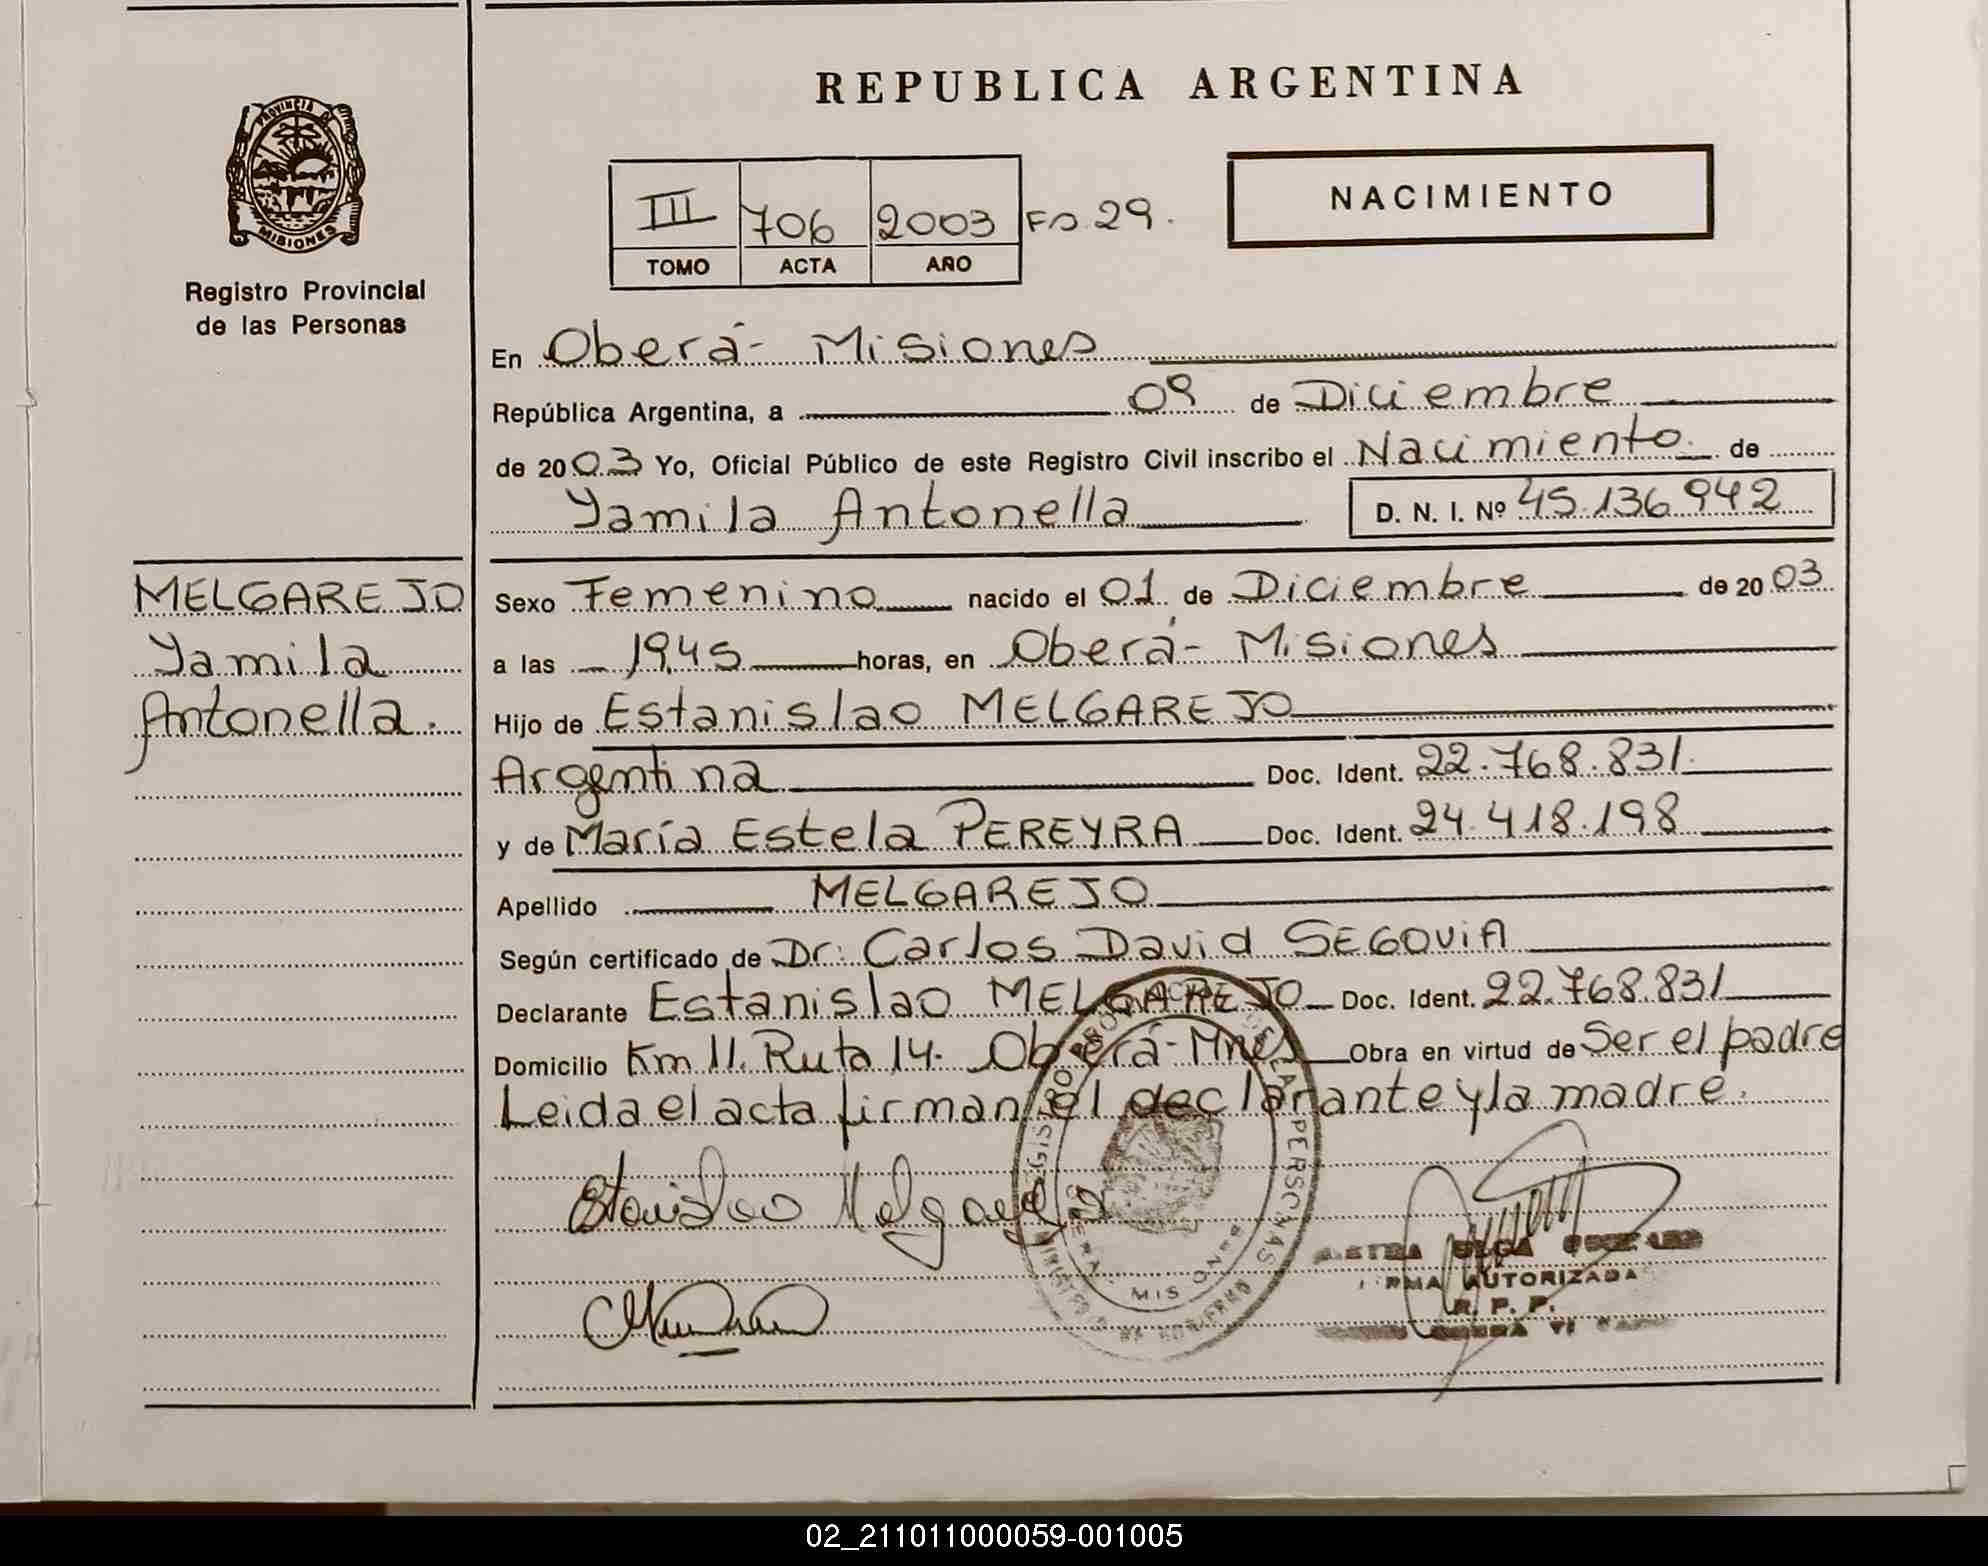 REPUBLICA ARGENTINA
PROVINCIA DE
MISIONES
Registro Provincial
de las Personas
NACIMIENTO
III 706 2003 Fo. 29.
TOMO ACTA AÑO
En Oberá - Misiones
República Argentina, a 09 de Diciembre
de 2003 Yo, Oficial Público de este Registro Civil inscribo el Nacimiento de
Yamila Antonella D. N. I. Nº 45.136.942
MELGAREJO
Yamila
Antonella.
Sexo Femenino nacido el 01 de Diciembre de 2003
a las 19,45 horas, en Oberá - Misiones
Hijo de Estanislao MELGAREJO
Argentina Doc. Ident. 22.768.831
y de María Estela PEREYRA Doc. Ident. 24.418.198
Apellido MELGAREJO
Según certificado de Dr. Carlos David SEGOVIA
Declarante Estanislao MELGAREJO Doc. Ident. 22.768.831
Domicilio Km 11. Ruta 14. Oberá - Mnes Obra en virtud de Ser el padre
Leida el acta firman el declarante y la madre.
Estanislao Melgarejo
OLGA
AUTORIZADA
R. P. P.
02_211011000059-001005